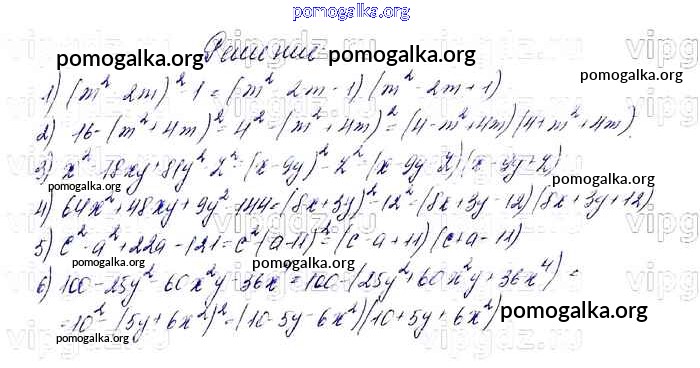 pomogalka.org
Решение pomogalka.org
pomogalka.org
1) (m² - 2m)² - 1 = (m² - 2m - 1)(m² - 2m + 1)
pomogalka.org
2) 16 - (m² + 4m)² = 4² - (m² + 4m)² = (4 - m² + 4m)(4 + m² + 4m)
pomogalka.org
3) x² - 18xy + 81y² - z² = (x - 9y)² - z² = (x - 9y - z)(x - 9y + z)
pomogalka.org pomogalka.org
4) 64x² + 48xy + 9y² - 144 = (8x + 3y)² - 12² = (8x + 3y - 12)(8x + 3y + 12)
5) c² - a² + 22a - 121 = c² - (a - 11)² = (c - a + 11)(c + a - 11)
pomogalka.org pomogalka.org
6) 100 - 25y² - 60x²y - 36x⁴ = 100 - (25y² + 60x²y + 36x⁴) =
= 10² - (5y + 6x²)² = (10 - 5y - 6x²)(10 + 5y + 6x²)
pomogalka.org
pomogalka.org